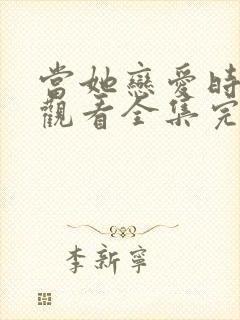 當她戀愛時
觀看全集完
李新寧